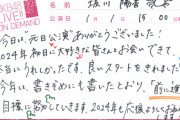 AKB48 LIVE!!
ON DEMAND
坂川 陽香
1/1 15:00
今日は"元日公演"ありがとうございました!
2024年初日に大好きな皆さんとお会いできて、
本当にうれしかったです。良いスタートをきれました
今年は、書きぞめにも書いたとおり、「前に進
目標に努力していきます。2024年も応援よろしくお